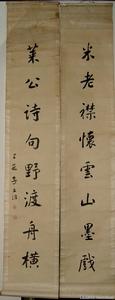 米老襟懷雲山墨戲
萊公诗句野渡舟橫